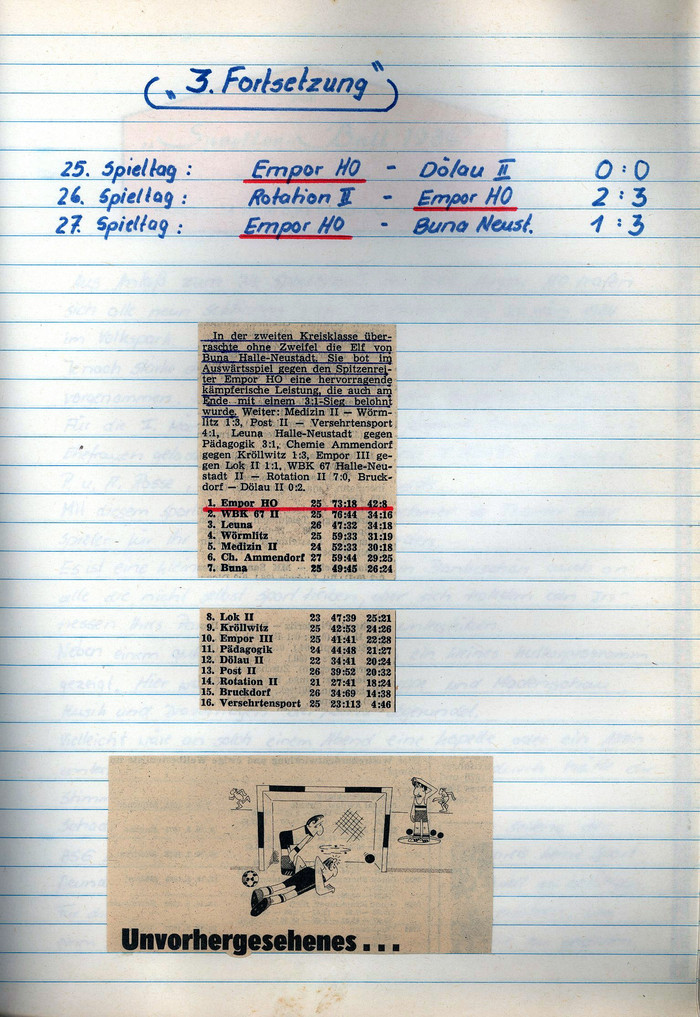 („3. Fortsetzung")
25. Spieltag : Empor HO - Dölau II 0 : 0
26. Spieltag : Rotation II - Empor HO 2 : 3
27. Spieltag : Empor HO - Buna Neust. 1 : 3
In der zweiten Kreisklasse über-
raschte ohne Zweifel die Elf von
Buna Halle-Neustadt. Sie bot im
Auswärtsspiel gegen den Spitzenrei-
ter Empor HO eine hervorragende
kämpferische Leistung, die auch am
Ende mit einem 3:1-Sieg belohnt
wurde. Weiter: Medizin II — Wörm-
litz 1:3, Post II — Versehrtensport
4:1, Leuna Halle-Neustadt gegen
Pädagogik 3:1, Chemie Ammendorf
gegen Kröllwitz 1:3, Empor III ge-
gen Lok II 1:1, WBK 67 Halle-Neu-
stadt II — Rotation II 7:0, Bruck-
dorf — Dölau II 0:2.
1. Empor HO 25 73:18 42:8
2. WBK 67 II 25 76:44 34:16
3. Leuna 26 47:32 34:18
4. Wörmlitz 25 59:33 31:19
5. Medizin II 24 52:33 30:18
6. Ch. Ammendorf 27 59:44 29:25
7. Buna 25 49:45 26:24
8. Lok II 23 47:39 25:21
9. Kröllwitz 25 42:53 24:26
10. Empor III 25 41:41 22:28
11. Pädagogik 24 44:48 21:27
12. Dölau II 22 34:41 20:24
13. Post II 26 39:52 20:32
14. Rotation II 21 27:41 18:24
15. Bruckdorf 26 34:69 14:38
16. Versehrtensport 25 23:113 4:46
Unvorhergesehenes . . .